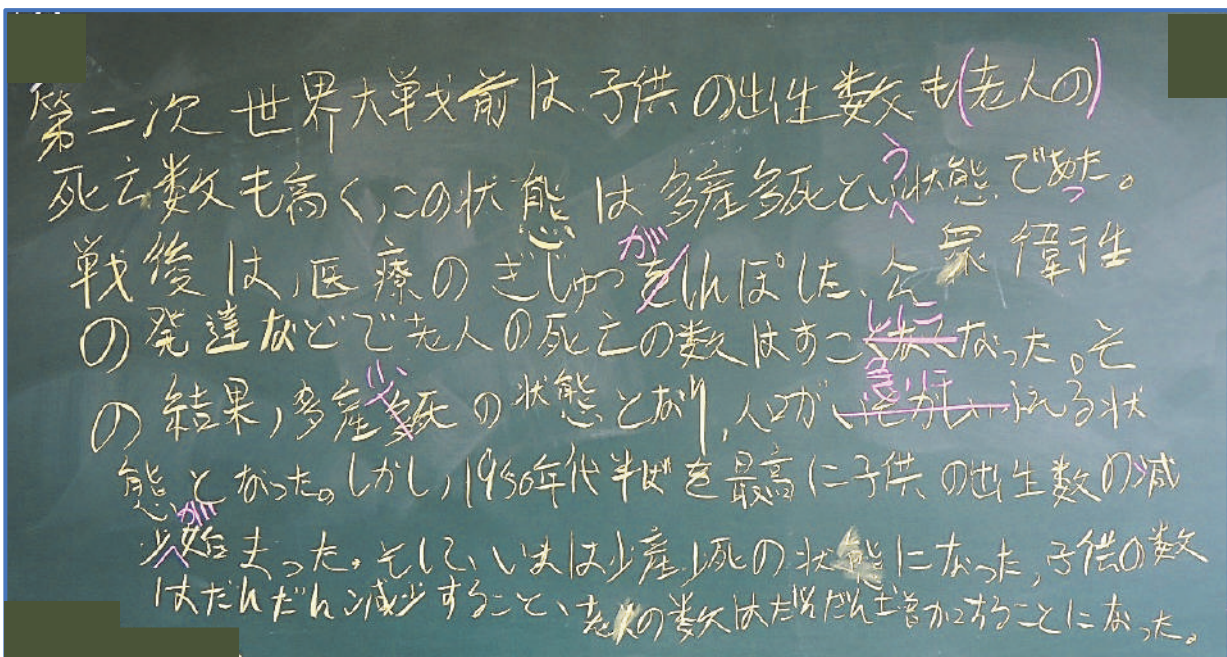 第二次世界大戦前は子供の出生数も(老人の)
死亡数も高く,この状態は多産多死という状態であった。
戦後は,医療のぎじゅつがしんぽした、公衆偉生
の発達などで老人の死亡の数はすこしになった。そ
の結果,多産少死の状態となり,人口が急にふえる状
態となった。しかし,1950年代半ばを最高に子供の出生数の減
少が始まった。そして、いまは少産少死の状態になった,子供の数
はだんだん減少すること、老人の数はだんだん増加することになった。